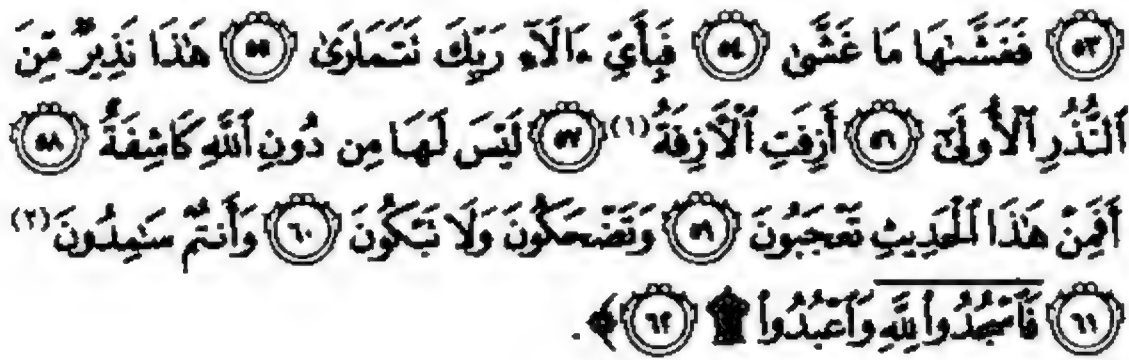 ﴿٥٣﴾ فَغَشَّىٰهَا مَا غَشَّىٰ ﴿٥٤﴾ فَبِأَيِّ ءَالَآءِ رَبِّكَ تَتَمَارَىٰ ﴿٥٥﴾ هَٰذَا نَذِيرٌ مِّنَ
ٱلنُّذُرِ ٱلْأُولَىٰٓ ﴿٥٦﴾ أَزِفَتِ ٱلْأَزِفَةُ (١) ﴿٥٧﴾ لَيْسَ لَهَا مِن دُونِ ٱللَّهِ كَاشِفَةٌ ﴿٥٨﴾
أَفَمِنْ هَٰذَا ٱلْحَدِيثِ تَعْجَبُونَ ﴿٥٩﴾ وَتَضْحَكُونَ وَلَا تَبْكُونَ ﴿٦٠﴾ وَأَنتُمْ سَٰمِدُونَ (٢)
﴿٦١﴾ فَٱسْجُدُوا۟ لِلَّهِ وَٱعْبُدُوا۟ ۩ ﴿٦٢﴾ ﴾.